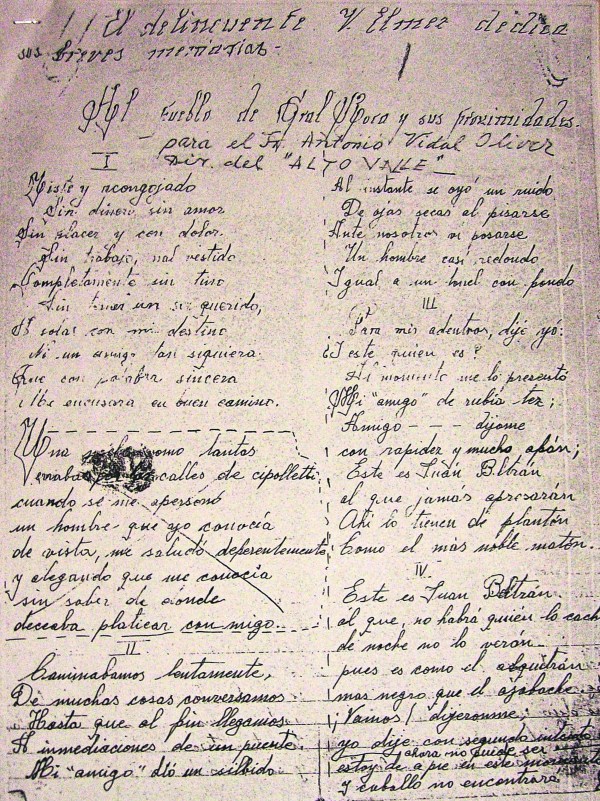 El delincuente V. Elmez dedica
sus breves memorias-
Al Pueblo de Gral Roca y sus proximidades-
para el Sr. Antonio Vidal Oliver
Dir. del "ALTO VALLE"
I
Triste y acongojado
Sin dinero, sin amor
Sin placer y con dolor.
Sin trabajo, mal vestido
Completamente sin tino
Sin tener un ser querido,
A solas con mi destino
Ni un amigo tan siquiera
Que con palabra sincera
Me encausara en buen camino.
Una como tantas
por calles de cipolletti
cuando se me apersonó
un hombre que yo conocía
de vista, me saludó deferentemente
y alegando que me conocía
sin saber de donde
deceaba platicar con migo.
II
Caminabamos lentamente,
De muchas cosas conversamos
Hasta que al fin llegamos
A inmediaciones de un puente.
Mi "amigo" dió un silbido
Al instante se oyó un ruido
De ojas secas al pisarse
Ante nosotros vi posarse
Un hombre casi redondo
Igual a un tonel con fondo
III
Para mis adentros, dije yó:
¿I este quien es?
Al momento me lo presentó
Mi "amigo" de rubia tez;
Amigo - - - díjome
con rapidez y mucho afán;
Este es Juán Beltrán
al que jamás apresarán
Ahi lo tienen de plantón
Como el más noble matón.
IV
Este es Juan Beltrán
al que, no habrá quién lo cache
de noche no lo verán
pues es como el alquitrán
mas negro que el azabache.
¡Vamos! dijeronme;
yo dije con segundo intento
ahora no puede ser
estoy de a pie en este momento
I caballo no encontraré